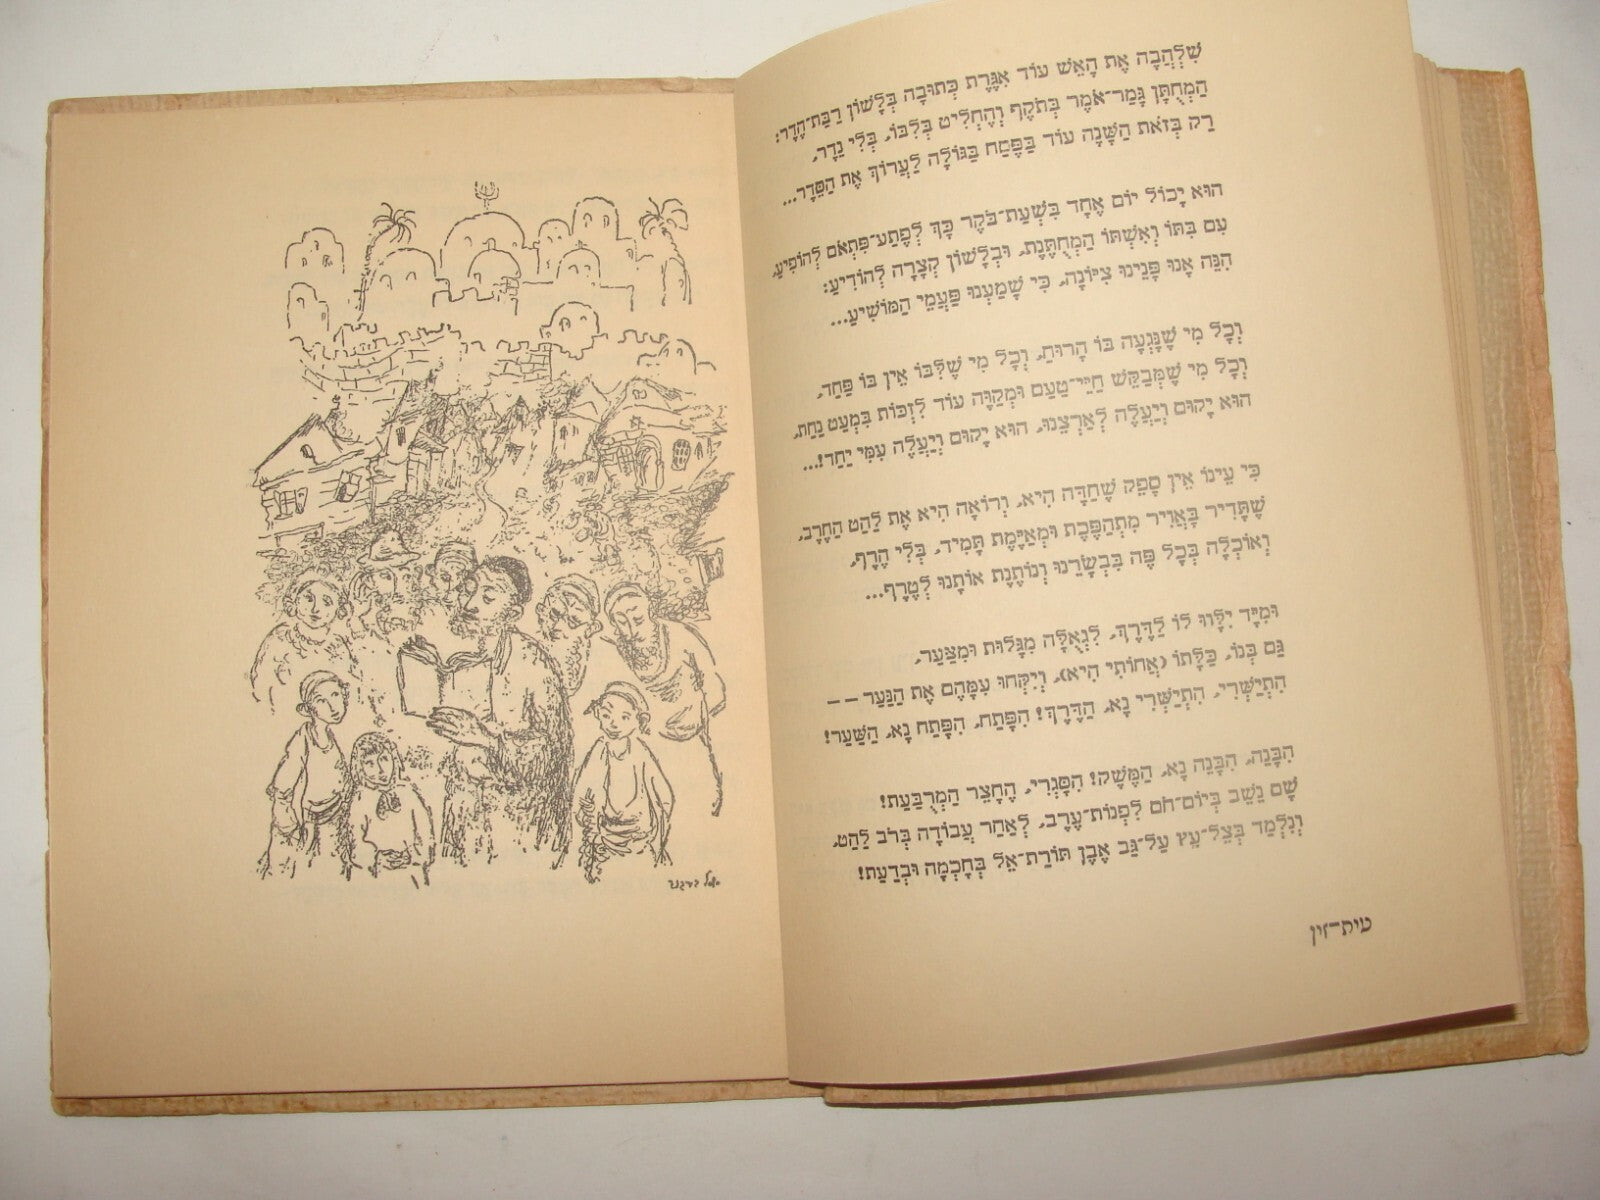 שַׁלְהֲבָה אֶת הָאֵשׁ עוֹד אִגֶּרֶת כְּתוּבָה בְּלָשׁוֹן רַבַּת־הָדָר:
הַמְחֻתָּן גָּמַר־אֹמֶר בְּתֹקֶף וְהֶחְלִיט בְּלִבּוֹ, בְּלִי נֵדֶר,
רַק בְּזֹאת הַשָּׁנָה עוֹד בַּפֶּסַח בַּגּוֹלָה לַעֲרוֹךְ אֶת הַסֵּדֶר...
הוּא יָכוֹל יוֹם אֶחָד בִּשְׁעַת־בֹּקֶר כָּךְ לְפֶתַע־פִּתְאֹם לְהוֹפִיעַ,
עִם בִּתּוֹ וְאִשְׁתּוֹ הַמְחֻתֶּנֶת, וּבְלָשׁוֹן קְצָרָה לְהוֹדִיעַ:
הִנֵּה אָנוּ פָּנֵינוּ צִיּוֹנָה, כִּי שָׁמַעְנוּ פַּעֲמֵי הַמּוֹשִׁיעַ...
וְכָל מִי שֶׁנָּגְעָה בּוֹ הָרוּחַ, וְכָל מִי שֶׁלִּבּוֹ אֵין בּוֹ פַּחַד,
וְכָל מִי שֶׁמְּבַקֵּשׁ חַיֵּי־טַעַם וּמְקַוֶּה עוֹד לִזְכּוֹת בִּמְעַט נַחַת,
הוּא יָקוּם וְיַעֲלֶה לְאַרְצֵנוּ, הוּא יָקוּם וְיַעֲלֶה עִמִּי יַחַד!...
כִּי עֵינוֹ אֵין סָפֵק שֶׁחַדָּה הִיא, וְרוֹאָה הִיא אֶת לַהַט הַחֶרֶב,
שֶׁתָּדִיר בָּאֲוִיר מִתְהַפֶּכֶת וּמְאַיֶּמֶת תָּמִיד, בְּלִי הֶרֶף,
וְאוֹכְלָה בְּכָל פֶּה בִּבְשָׂרֵנוּ וְנוֹתֶנֶת אוֹתָנוּ לְטֶרֶף...
וּמִיָּד יִלָּווּ לוֹ לַדֶּרֶךְ, לִגְאֻלָּה מִגָּלוּת וּמִצַּעַר,
גַּם בְּנוֹ, כַּלָּתוֹ (אֲחוֹתִי הִיא), וְיִקְחוּ עִמָּהֶם אֶת הַנַּעַר – –
הִתְיַשְּׁרִי, הִתְיַשְּׁרִי נָא, הַדֶּרֶךְ! הִפָּתַח, הִפָּתַח נָא, הַשַּׁעַר!
הִבָּנֵה, הִבָּנֵה נָא, הַמֶּשֶׁק! הִסָּגְרִי, הֶחָצֵר הַמְרֻבַּעַת!
שָׁם נֵשֵׁב בְּיוֹם־חֹם לִפְנוֹת־עֶרֶב, לְאַחַר עֲבוֹדָה בְּרֹב לַהַט,
וְנִלְמַד בְּצֵל־עֵץ עַל־גַּב אֶבֶן תּוֹרַת־אֵל בְּחָכְמָה וּבְדַעַת!
טית־זין